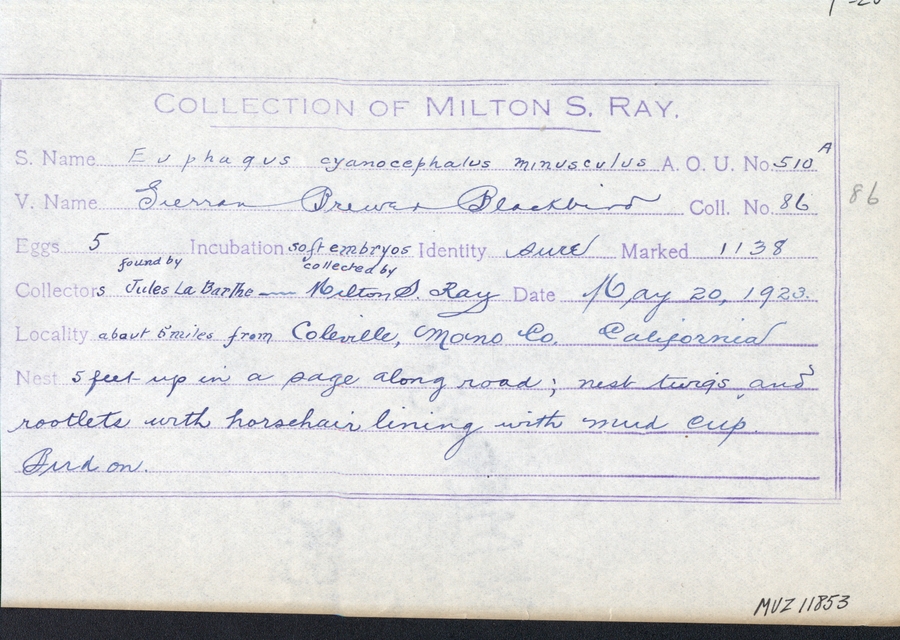 COLLECTION OF MILTON S. RAY.
S. Name Euphagus cyanocephalus minusculus A. O. U. No. 510 A
V. Name Sierran Brewer Blackbird Coll. No. 86
86
Eggs 5 Incubation soft embryos Identity sure Marked 1138
found by collected by
Collectors Jules La Barthe — Milton S. Ray Date May 20, 1923.
Locality about 5 miles from Coleville, Mono Co. California
Nest 5 feet up in a sage along road; nest twigs and
rootlets with horsehair lining with mud cup.
Bird on.
MVZ 11853